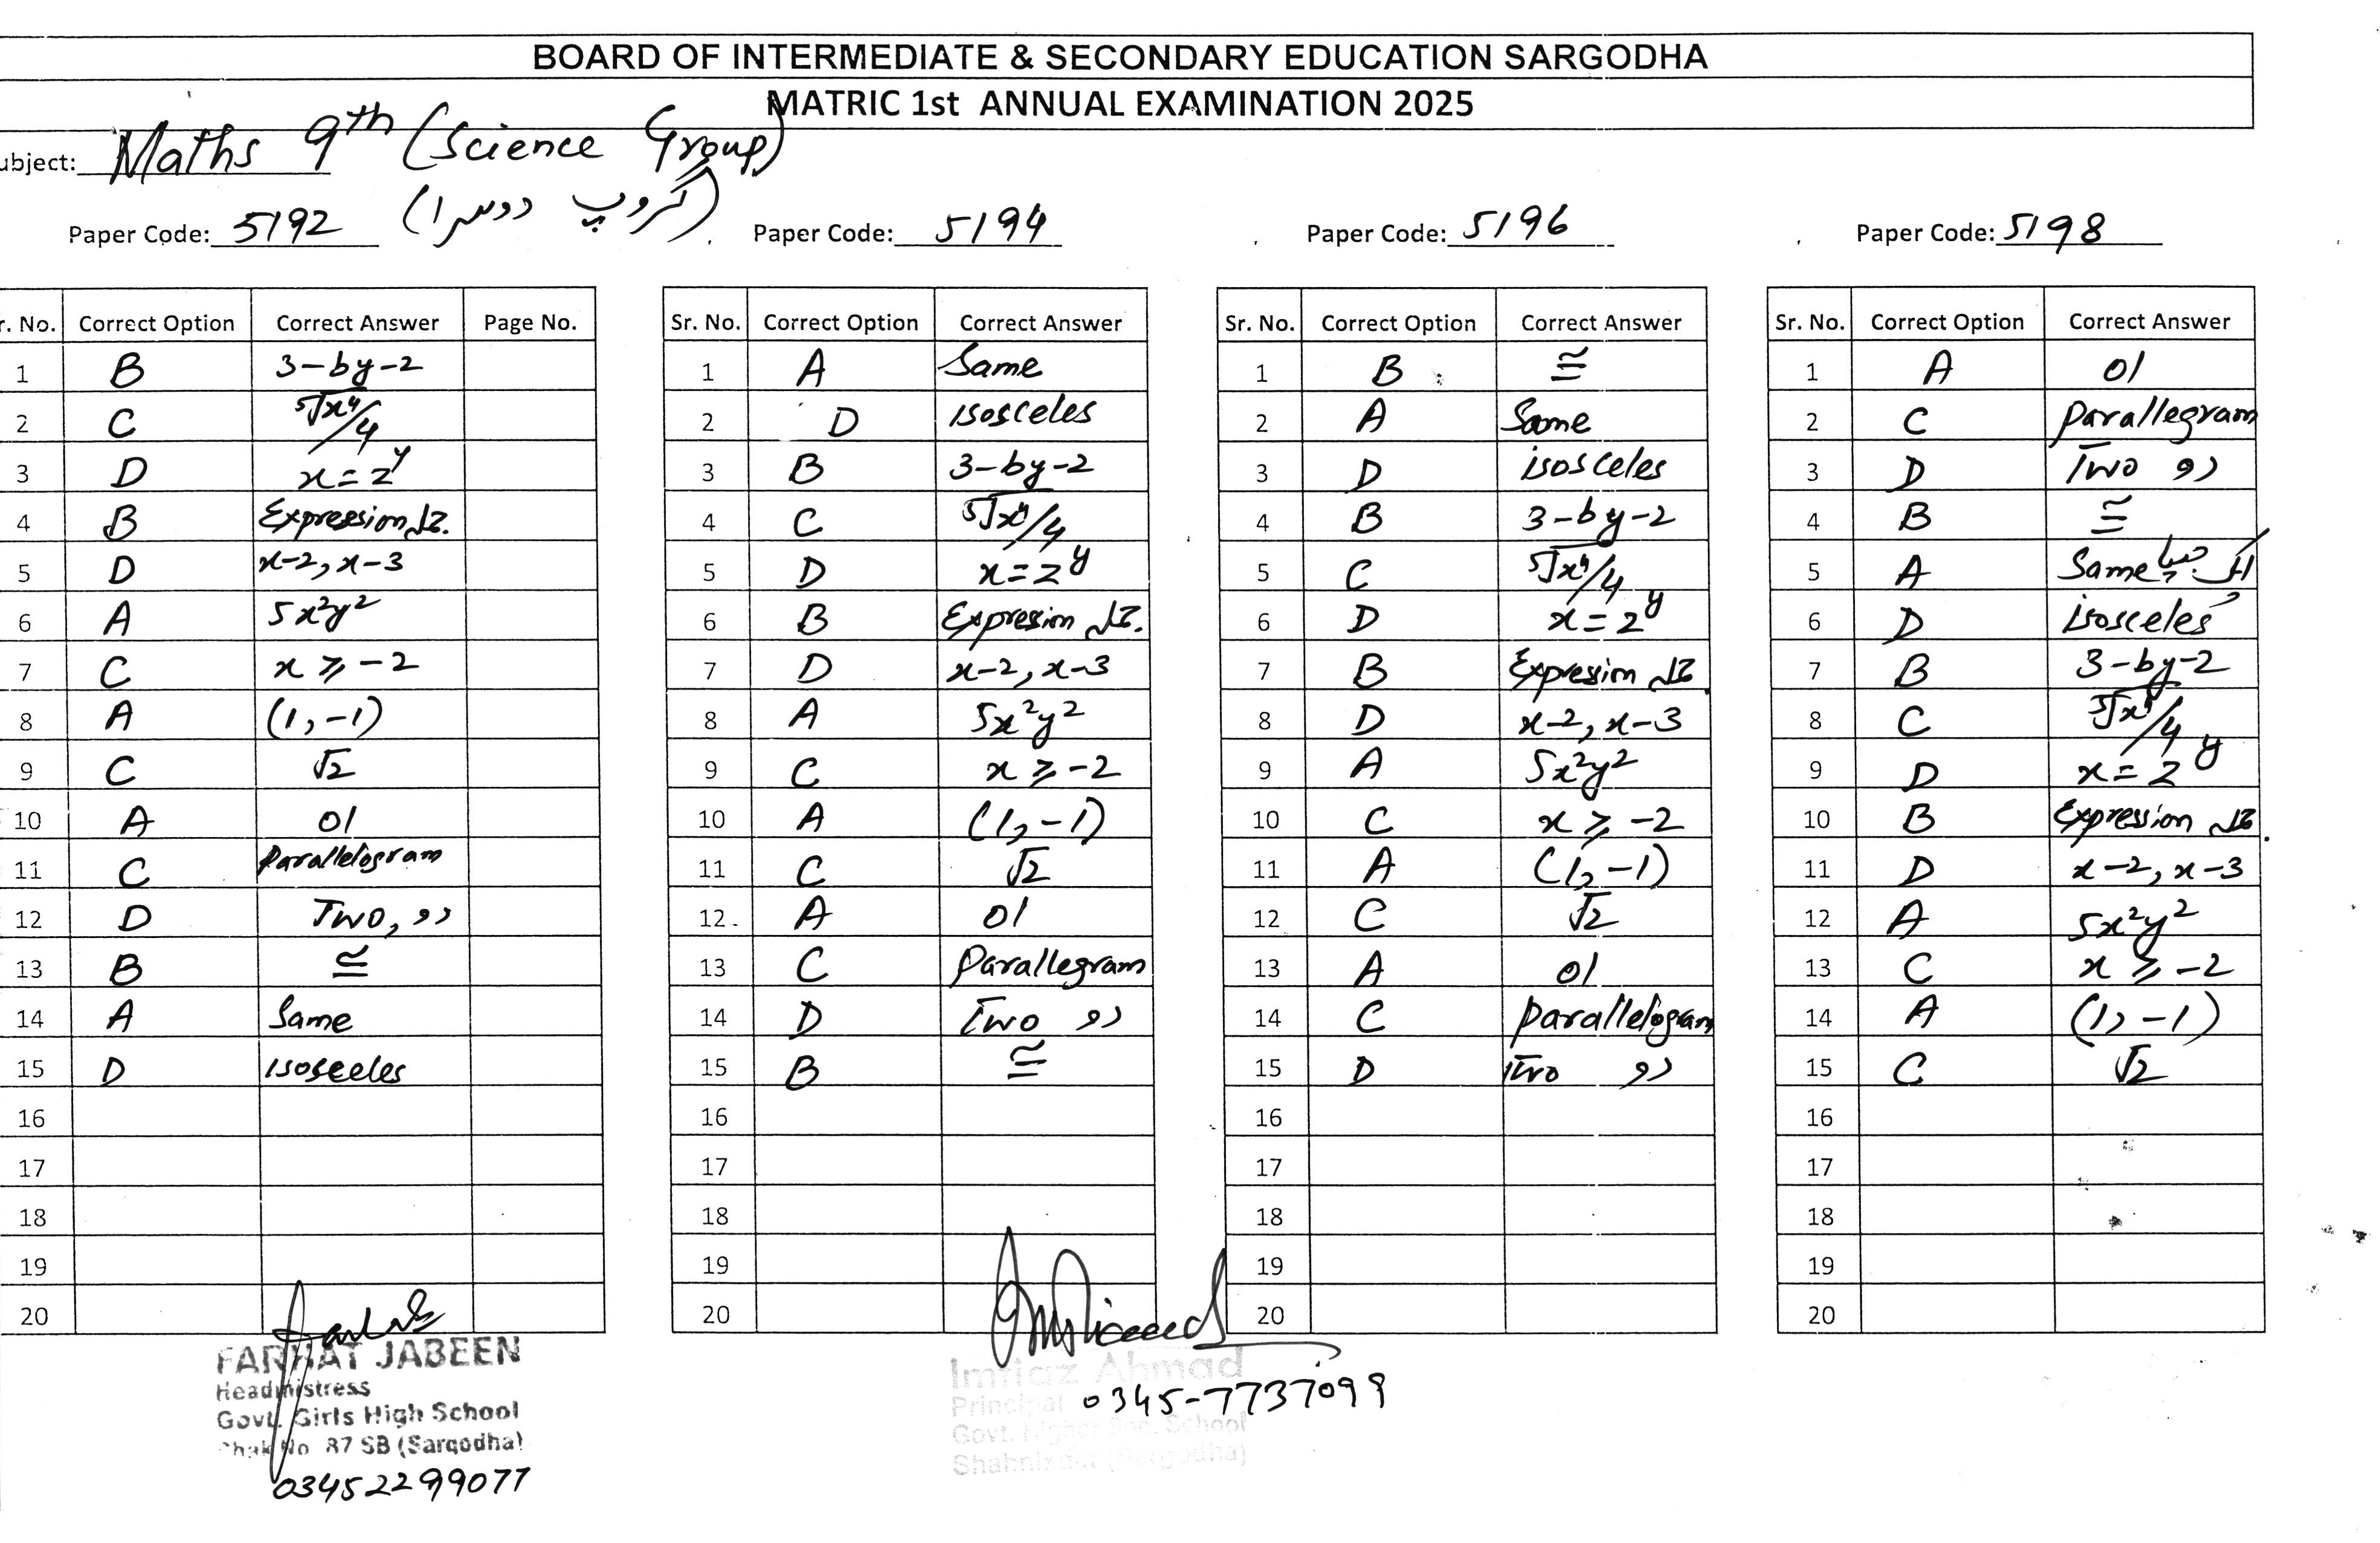 BOARD OF INTERMEDIATE & SECONDARY EDUCATION SARGODHA
MATRIC 1st ANNUAL EXAMINATION 2025
ubject: Maths 9th (Science Group)
(گروپ دوسرا)
Paper Code: 5192
r. No. Correct Option Correct Answer Page No.
1 B 3-by-2
2 C ⁵√x⁴/4
3 D x = z^y
4 B Expression جملہ
5 D x-2, x-3
6 A 5x²y²
7 C x ⩾ -2
8 A (1, -1)
9 C √2
10 A 01
11 C Parallelogram
12 D Two, دو
13 B ≅
14 A Same
15 D isosceles
16
17
18
19
20
Paper Code: 5194
Sr. No. Correct Option Correct Answer
1 A Same
2 D isosceles
3 B 3-by-2
4 C ⁵√x⁴/4
5 D x = z^y
6 B Expresion جملہ
7 D x-2, x-3
8 A 5x²y²
9 C x ⩾ -2
10 A (1, -1)
11 C √2
12 A 01
13 C Parallegram
14 D Two دو
15 B ≅
16
17
18
19
20
Paper Code: 5196
Sr. No. Correct Option Correct Answer
1 B ≅
2 A Same
3 D isosceles
4 B 3-by-2
5 C ⁵√x⁴/4
6 D x = z^y
7 B Expresion جملہ
8 D x-2, x-3
9 A 5x²y²
10 C x ⩾ -2
11 A (1, -1)
12 C √2
13 A 01
14 C Parallelogram
15 D Two دو
16
17
18
19
20
Paper Code: 5198
Sr. No. Correct Option Correct Answer
1 A 01
2 C Parallegram
3 D Two دو
4 B ≅
5 A Same ایک جیسا
6 D isosceles
7 B 3-by-2
8 C ⁵√x⁴/4
9 D x = z^y
10 B Expression جملہ
11 D x-2, x-3
12 A 5x²y²
13 C x ⩾ -2
14 A (1, -1)
15 C √2
16
17
18
19
20
FARHAT JABEEN
Headmistress
Govt. Girls High School
Chak No 87 SB (Sargodha)
03452299077
Imtiaz Ahmad
Principal 0345-7737099
Govt. Higher Sec. School
(Sargodha)